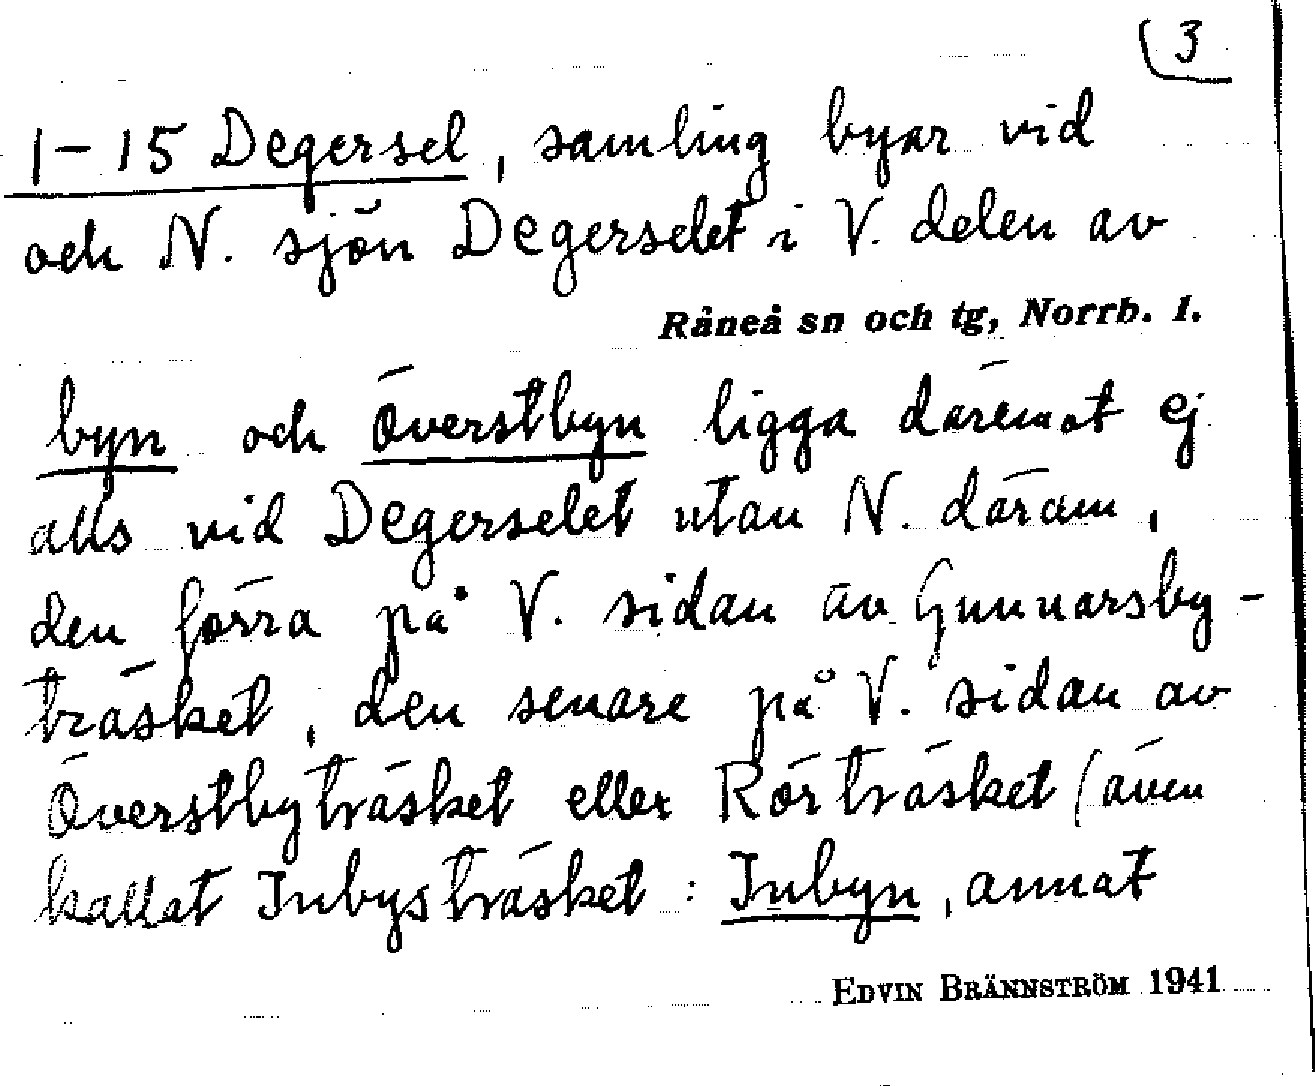 3
1-15 Degersel, samling byar vid
och N. sjön Degerselet i V. delen av
Råneå sn och tg, Norrb. l.
byn och Överstbyn ligga däremot ej
alls vid Degerselet utan N. därom,
den förra på V. sidan av Gunnarsby-
träsket, den senare på V. sidan av
Överstbyträsket eller Rörträsket (även
kallat Inbysträsket: Inbyn, annat
EDVIN BRÄNNSTRÖM 1941